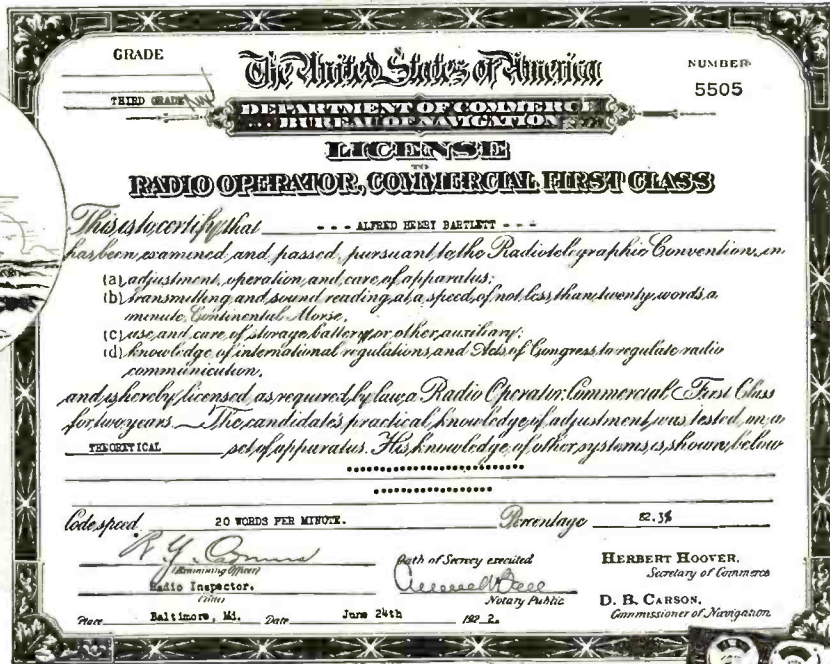 GRADE
The United States of America
NUMBER
5505
THIRD GRADE
DEPARTMENT OF COMMERCE
BUREAU OF NAVIGATION
LICENSE
TO
RADIO OPERATOR, COMMERCIAL FIRST CLASS
This is to certify that - - - ALFRED HENRY BARTLETT - - -
has been examined and passed, pursuant to the Radiotelegraphic Convention, in
(a) adjustment, operation, and care of apparatus;
(b) transmitting and sound reading at a speed of not less than twenty words a
minute Continental Morse.
(c) use and care of storage battery or other auxiliary;
(d) knowledge of international regulations and Acts of Congress to regulate radio
communication,
and is hereby licensed, as required by law, a Radio Operator, Commercial First Class
for two years. The candidate's practical knowledge of adjustment was tested on a
THEORETICAL set of apparatus. His knowledge of other systems is shown below
Code speed 20 WORDS PER MINUTE. Percentage 82.3%
(Examining Officer)
Radio Inspector.
(Title)
Place Baltimore, Md. Date June 24th 192 2.
Oath of Secrecy executed
Notary Public
HERBERT HOOVER,
Secretary of Commerce
D. B. CARSON,
Commissioner of Navigation